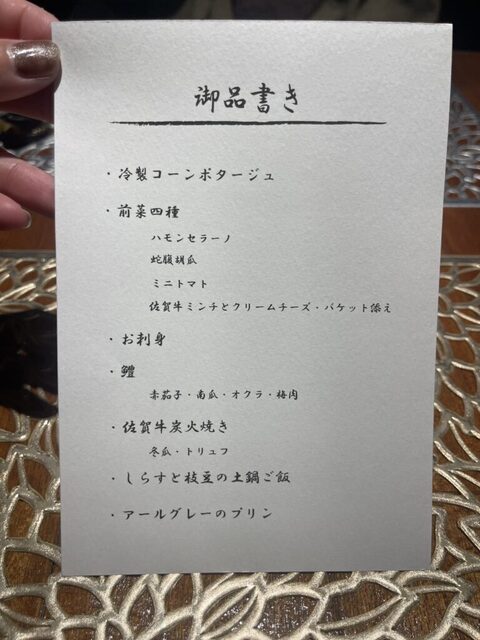 御品書き
・冷製コーンポタージュ
・前菜四種
ハモンセラーノ
蛇腹胡瓜
ミニトマト
佐賀牛ミンチとクリームチーズ・バケット添え
・お刺身
・鱧
赤茄子・南瓜・オクラ・梅肉
・佐賀牛炭火焼き
冬瓜・トリュフ
・しらすと枝豆の土鍋ご飯
・アールグレーのプリン